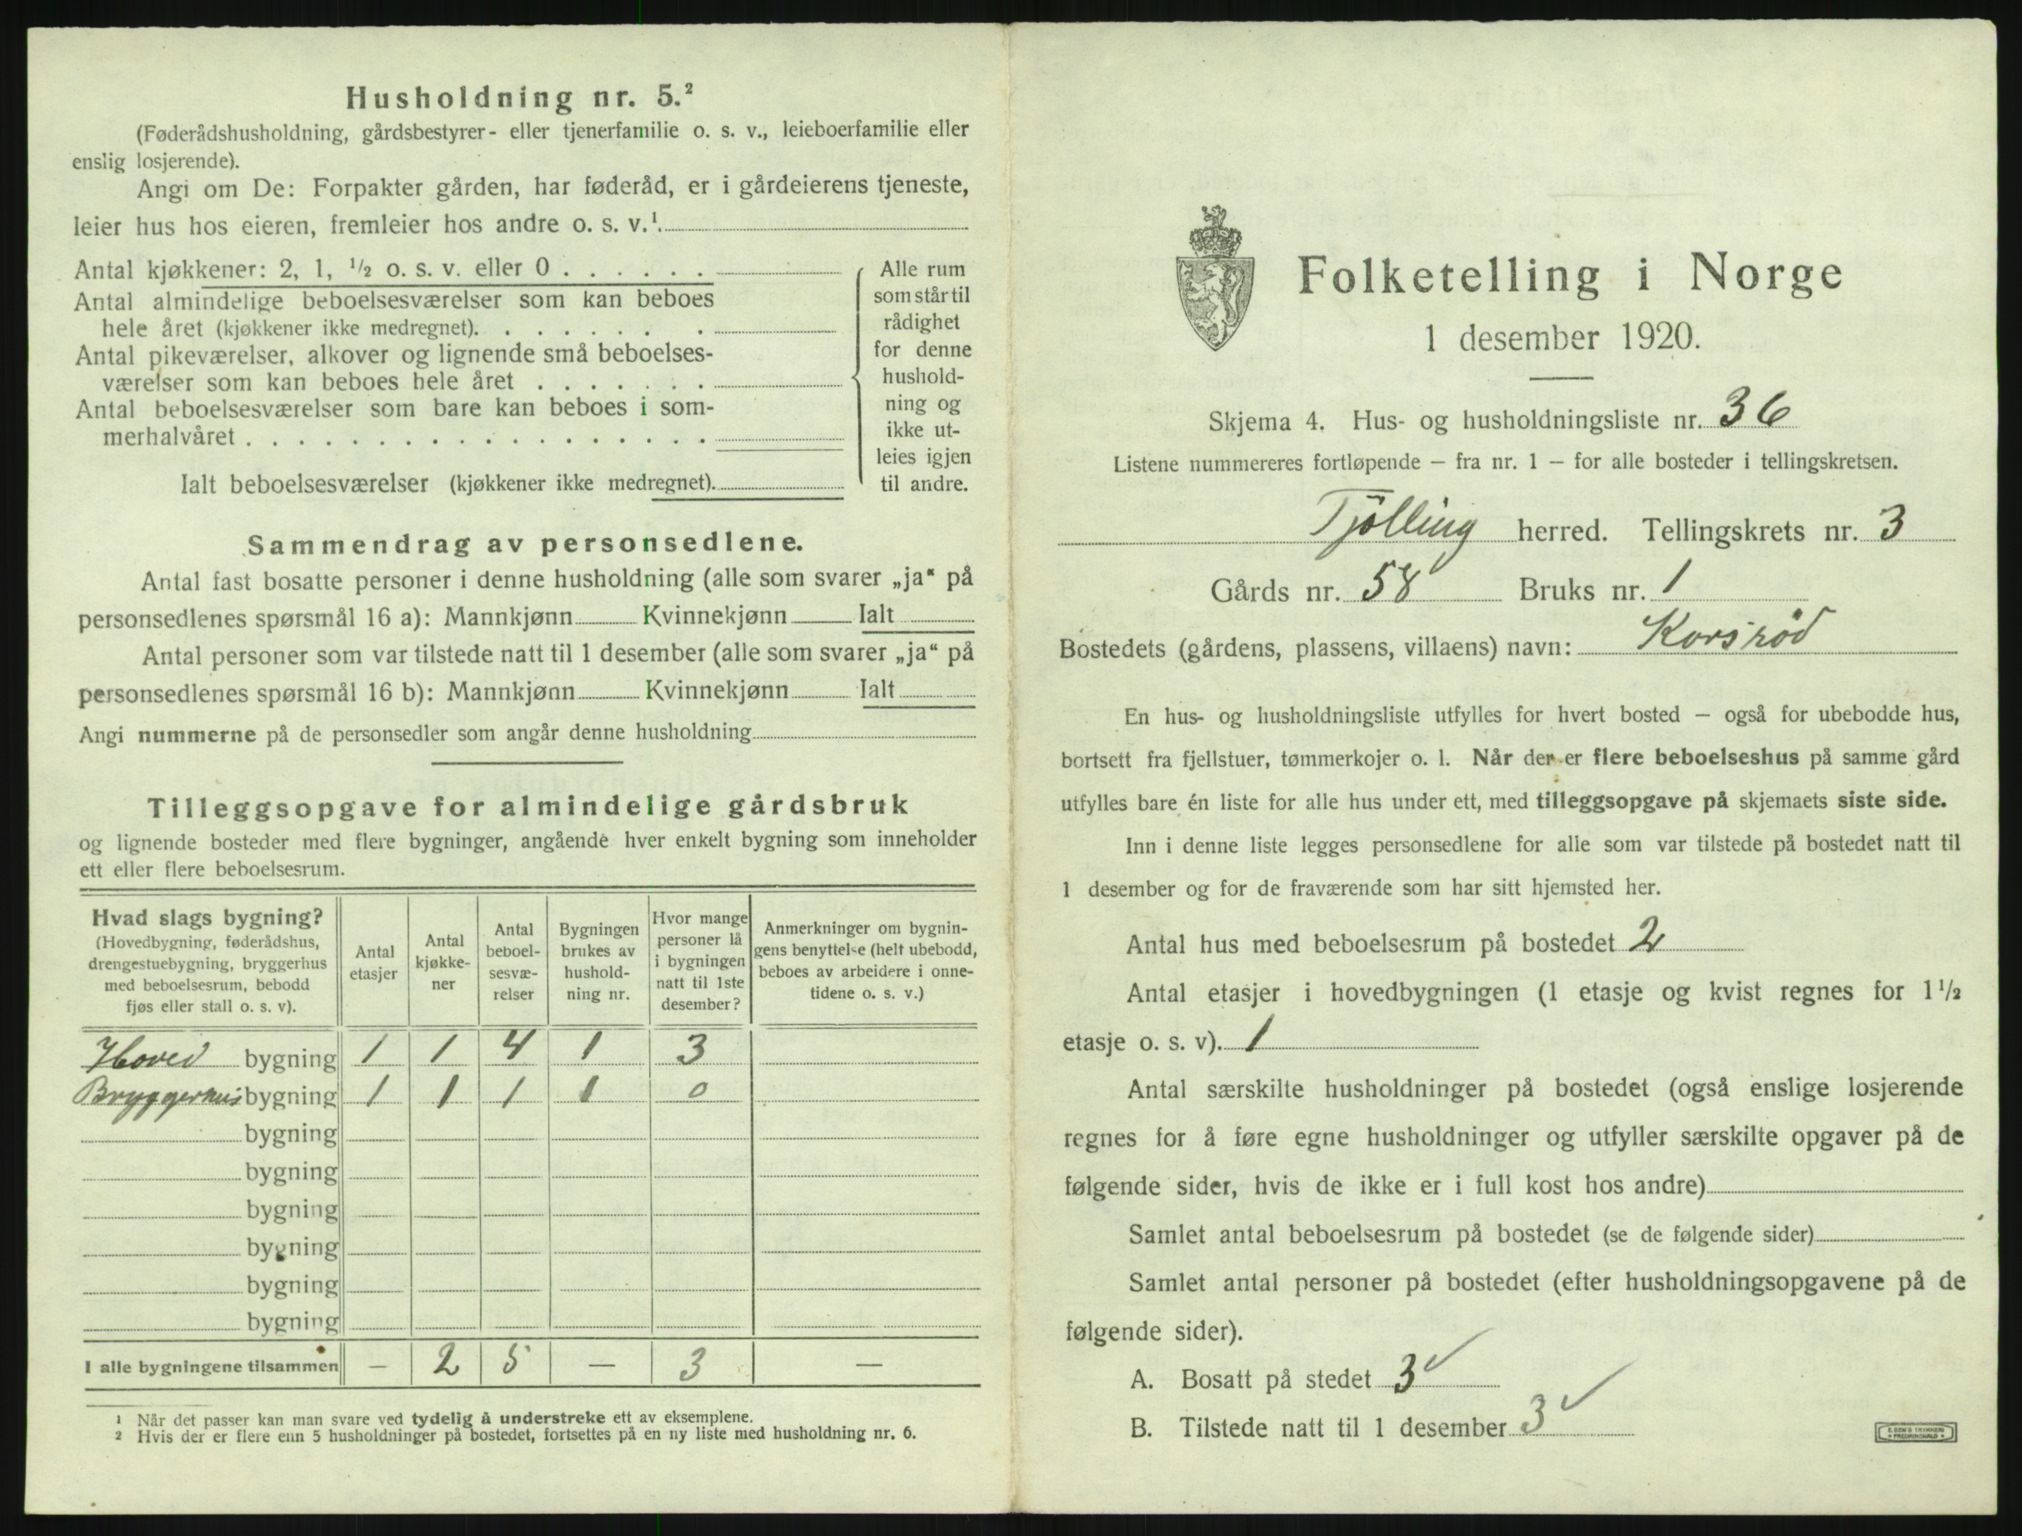 Husholdning nr. 5.²
(Føderådshusholdning, gårdsbestyrer- eller tjenerfamilie o. s. v., leieboerfamilie eller
enslig losjerende).
Angi om De: Forpakter gården, har føderåd, er i gårdeierens tjeneste,
leier hus hos eieren, fremleier hos andre o. s. v.¹.
Antal kjøkkener: 2, 1, ½ o. s. v. eller 0 . . . . . .
Antal almindelige beboelsesværelser som kan beboes
hele året (kjøkkener ikke medregnet). . . . . . . .
Antal pikeværelser, alkover og lignende små beboelses-
værelser som kan beboes hele året . . . . . . .
Antal beboelsesværelser som bare kan beboes i som-
merhalvåret . . . . . . . . . . . . . . . . . .
Ialt beboelsesværelser (kjøkkener ikke medregnet).
Alle rum
som står til
rådighet
for denne
hushold-
ning og
ikke ut-
leies igjen
til andre.
Sammendrag av personsedlene.
Antal fast bosatte personer i denne husholdning (alle som svarer „ja“ på
personsedlenes spørsmål 16 a): Mannkjønn Kvinnekjønn Ialt
Antal personer som var tilstede natt til 1 desember (alle som svarer „ja“ på
personsedlenes spørsmål 16 b): Mannkjønn Kvinnekjønn Ialt
Angi nummerne på de personsedler som angår denne husholdning
Tilleggsopgave for almindelige gårdsbruk
og lignende bosteder med flere bygninger, angående hver enkelt bygning som inneholder
ett eller flere beboelsesrum.
Hvad slags bygning?
(Hovedbygning, føderådshus,
drengestuebygning, bryggerhus
med beboelsesrum, bebodd
fjøs eller stall o. s. v).
Antal
etasjer
Antal
kjøkke-
ner
Antal
beboel-
sesvæ-
relser
Bygningen
brukes av
hushold-
ning nr.
Hvor mange
personer lå
i bygningen
natt til 1ste
desember?
Anmerkninger om bygnin-
gens benyttelse (helt ubebodd,
beboes av arbeidere i onne-
tidene o. s. v.)
Hoved bygning 1 1 4 1 3
Bryggerhus bygning 1 1 1 1 0
bygning
bygning
bygning
bygning
bygning
bygning
I alle bygningene tilsammen — 2 5 — 3 —
¹ Når det passer kan man svare ved tydelig å understreke ett av eksemplene.
² Hvis der er flere enn 5 husholdninger på bostedet, fortsettes på en ny liste med husholdning nr. 6.
Folketelling i Norge
1 desember 1920.
Skjema 4. Hus- og husholdningsliste nr. 36
Listene nummereres fortløpende – fra nr. 1 – for alle bosteder i tellingskretsen.
Tjølling herred. Tellingskrets nr. 3
Gårds nr. 58 Bruks nr. 1
Bostedets (gårdens, plassens, villaens) navn: Korsrød
En hus- og husholdningsliste utfylles for hvert bosted – også for ubebodde hus,
bortsett fra fjellstuer, tømmerkojer o. l. Når der er flere beboelseshus på samme gård
utfylles bare én liste for alle hus under ett, med tilleggsopgave på skjemaets siste side.
Inn i denne liste legges personsedlene for alle som var tilstede på bostedet natt til
1 desember og for de fraværende som har sitt hjemsted her.
Antal hus med beboelsesrum på bostedet 2
Antal etasjer i hovedbygningen (1 etasje og kvist regnes for 1½
etasje o. s. v). 1
Antal særskilte husholdninger på bostedet (også enslige losjerende
regnes for å føre egne husholdninger og utfyller særskilte opgaver på de
følgende sider, hvis de ikke er i full kost hos andre)
Samlet antal beboelsesrum på bostedet (se de følgende sider)
Samlet antal personer på bostedet (efter husholdningsopgavene på de
følgende sider).
A. Bosatt på stedet 3 ✓
B. Tilstede natt til 1 desember 3 ✓